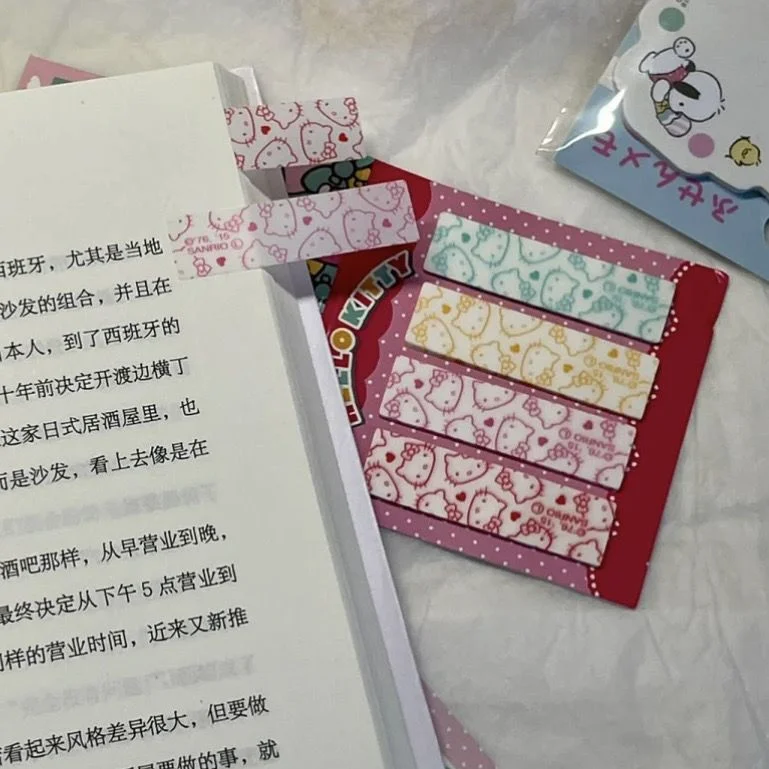 西班牙，尤其是当地
沙发的组合，并且在
本人，到了西班牙的
十年前决定开渡边横丁
这家日式居酒屋里，也
而是沙发，看上去像是在
酒吧那样，从早营业到晚，
最终决定从下午 5 点营业到
同样的营业时间，近来又新推
看起来风格差异很大，但要做
要做的事，就
©'76, '15
SANRIO Ⓛ
HELLO KITTY
©'76, '15
SANRIO Ⓛ
©'76, '15
SANRIO Ⓛ
©'76, '15
SANRIO Ⓛ
©'76, '15
SANRIO Ⓛ
ふせんメモ